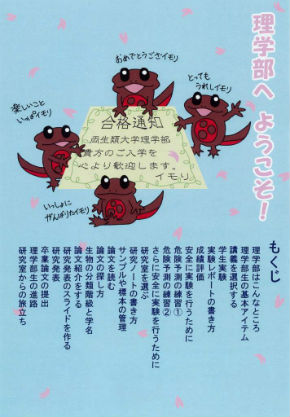 理学部へ ようこそ!
おめでとうございモリ
とっても
うれしイモリ
楽しいこと
いっぱイモリ
いっしょに
がんばりたイモリ
合格通知
両生類大学理学部
貴方のご入学を
心より歓迎します。
イモリ
もくじ
理学部はこんなところ
理学部生の基本アイテム
講義を選択する
学生実験
実験レポートの書き方
成績評価
安全に実験を行うために
危険予測の練習①
危険予測の練習②
さらに安全に実験を行うために
研究室を選ぶ
研究ノートの書き方
サンプルや標本の管理
論文を読む
論文の探し方
生物の分類階級と学名
論文紹介をする
研究発表のスライドを作る
研究発表
卒業論文の提出
理学部生の進路
研究室からの旅立ち